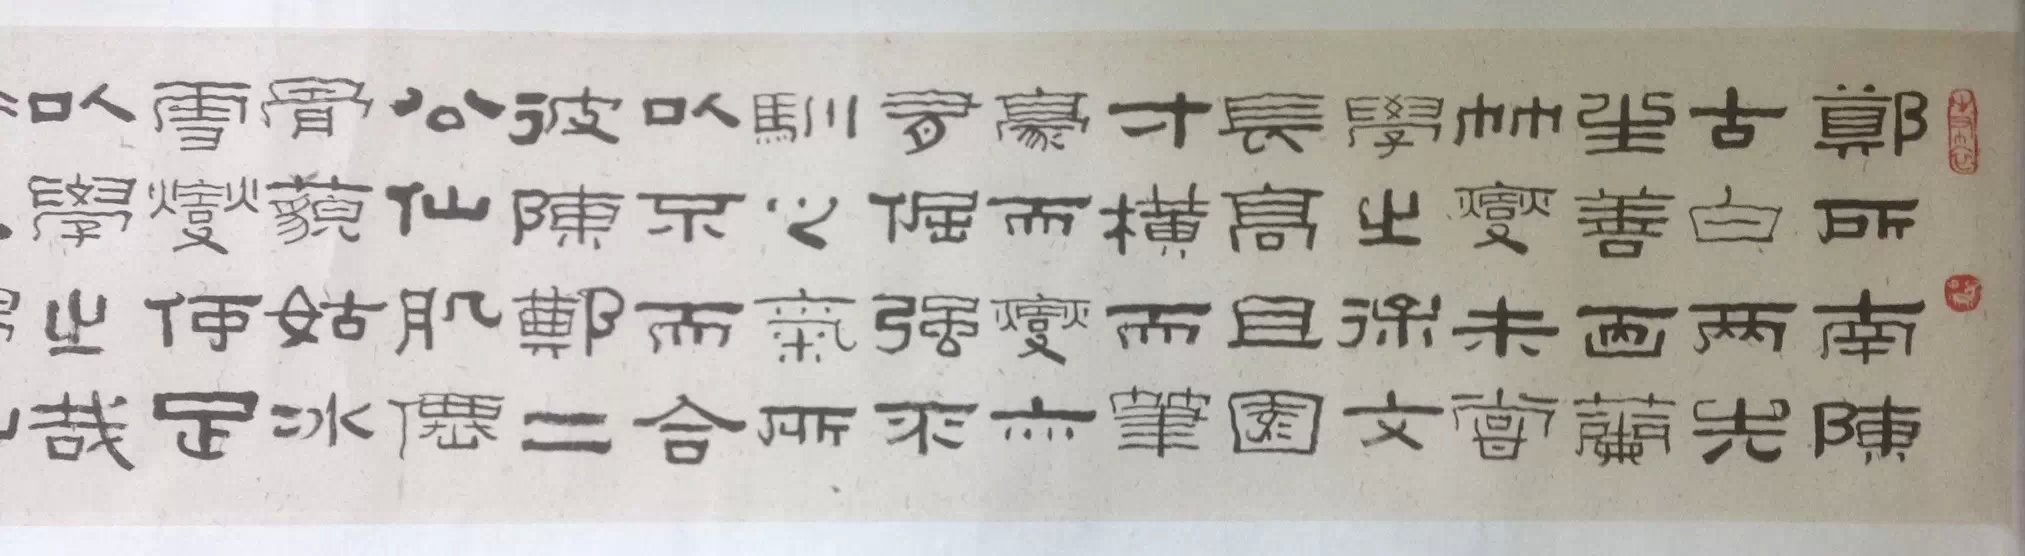 鄭所南陳
古白兩先
生善画蘭
竹燮未嘗
學之徐文
長高且園
才橫而筆
豪而燮亦
有倔強不
馴之氣所
以不而合
彼陳鄭二
公仙肌僊
骨藐姑冰
雪燮何足
以學之哉